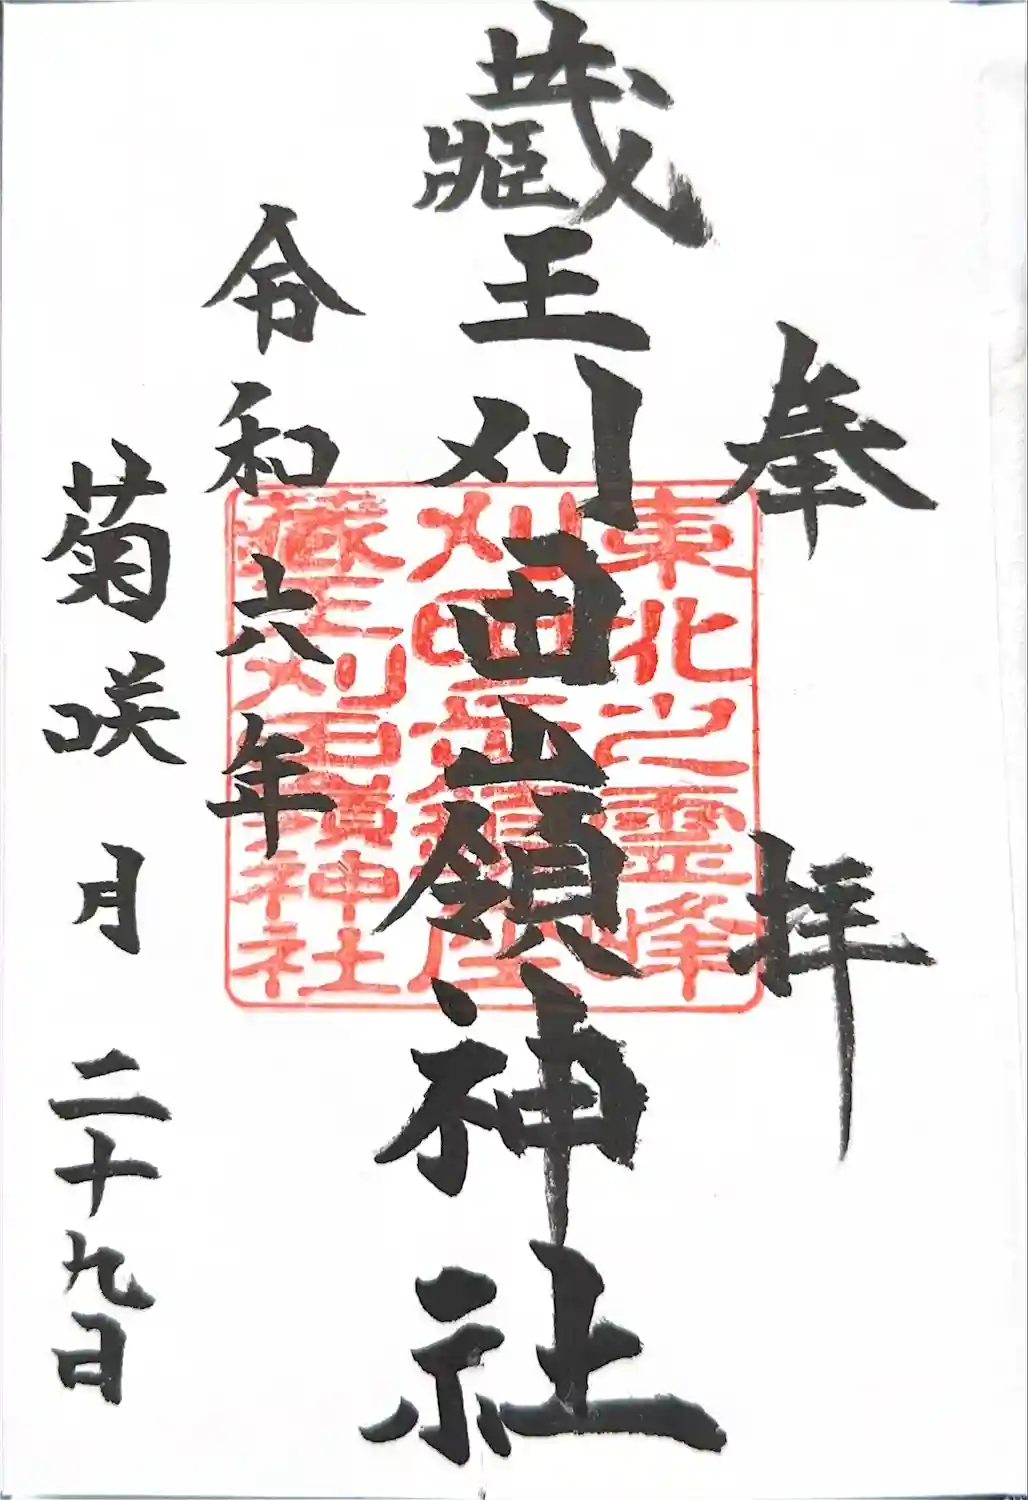 奉拝
藏王刈田嶺神社
令和六年
菊咲月二十九日
東北之霊峰
刈田
藏王刈田嶺神社